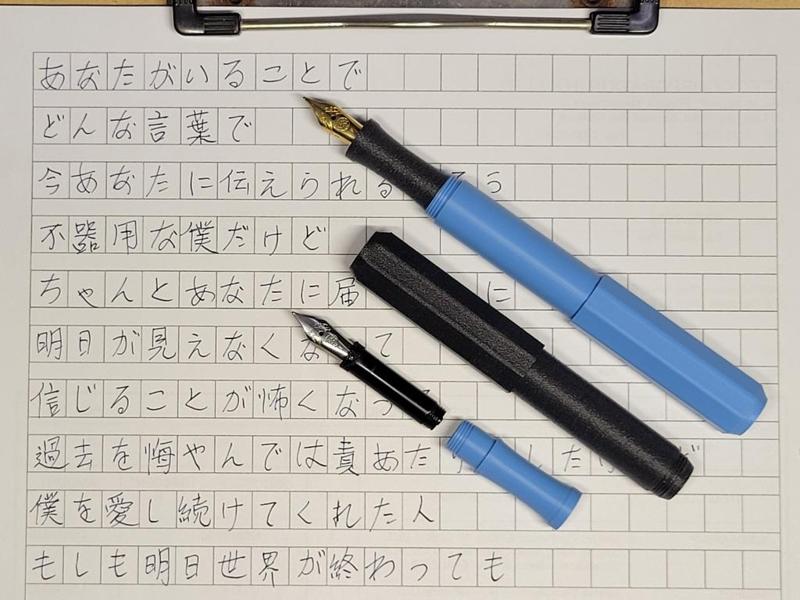 あなたがいることで
どんな言葉で
今あなたに伝えられる ろう
不器用な僕だけど
ちゃんとあなたに届 に
明日が見えなくな て
信じることが怖くなっ
過去を悔やんでは責あた した
僕を愛し続けてくれた人
もしも明日世界が終わっても